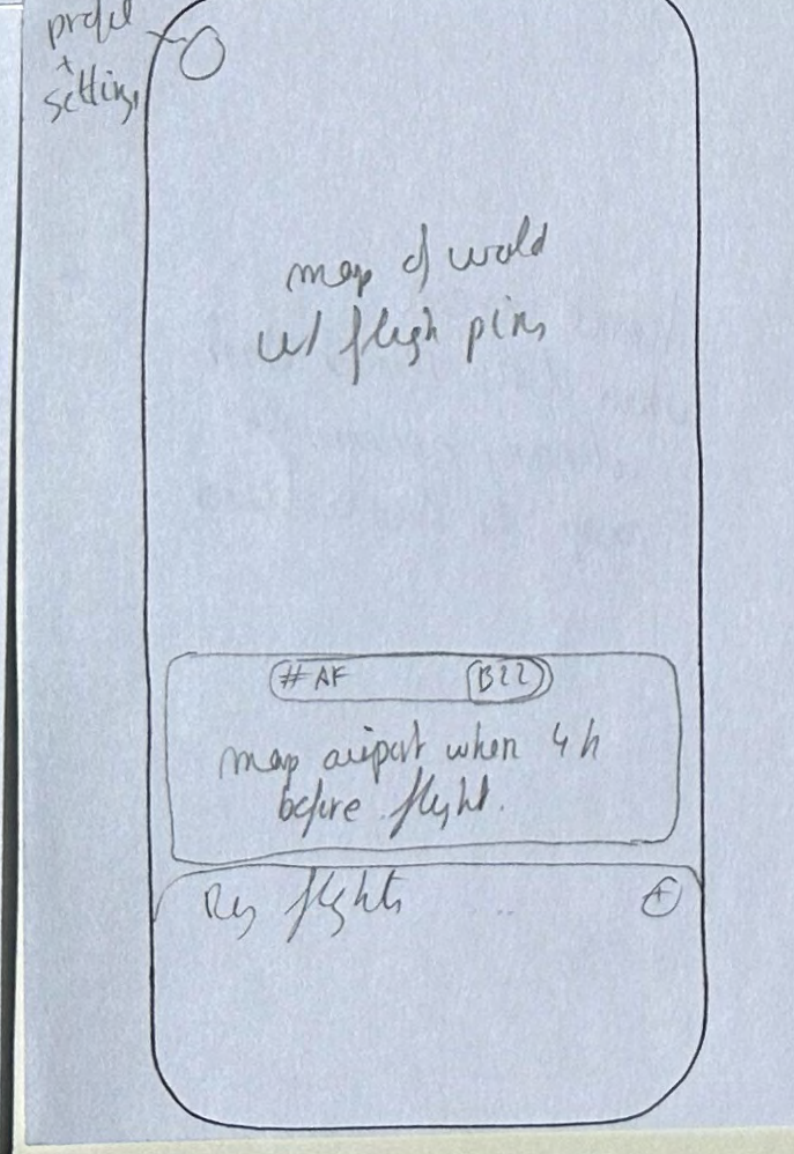 profil
+
settings
map of world
w/ fligh pins
#AF
B22
map airport when 4h
before flight.
flights
+